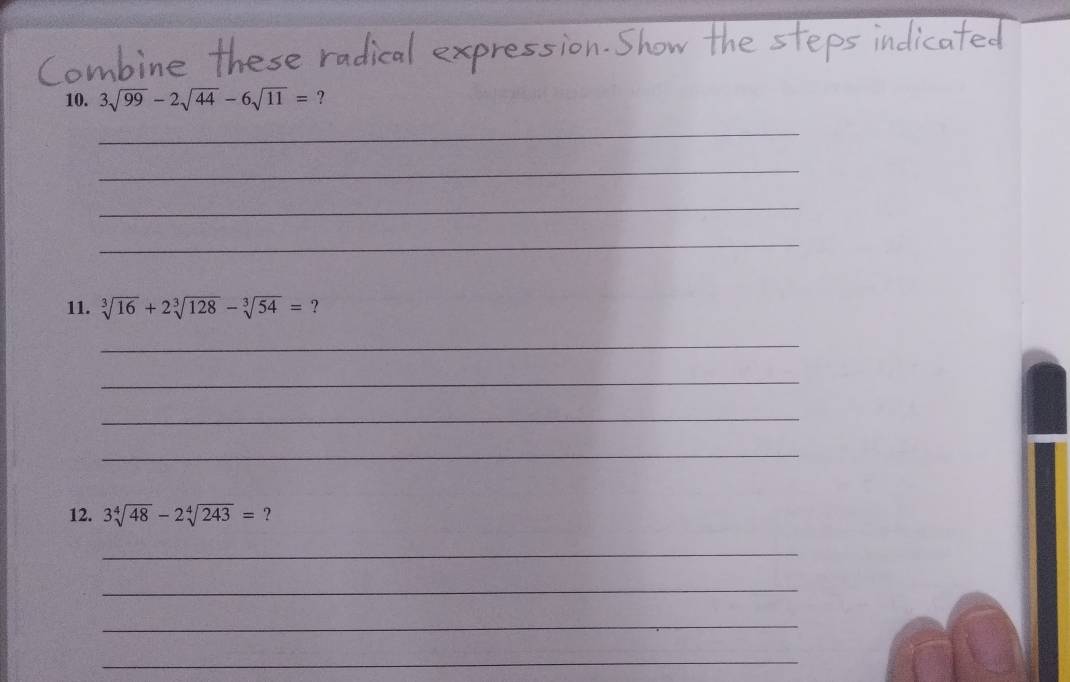 Combine these radical expression. Show the steps indicated
10. 3√99 - 2√44 - 6√11 = ?
11. ∛16 + 2∛128 - ∛54 = ?
12. 3∜48 - 2∜243 = ?